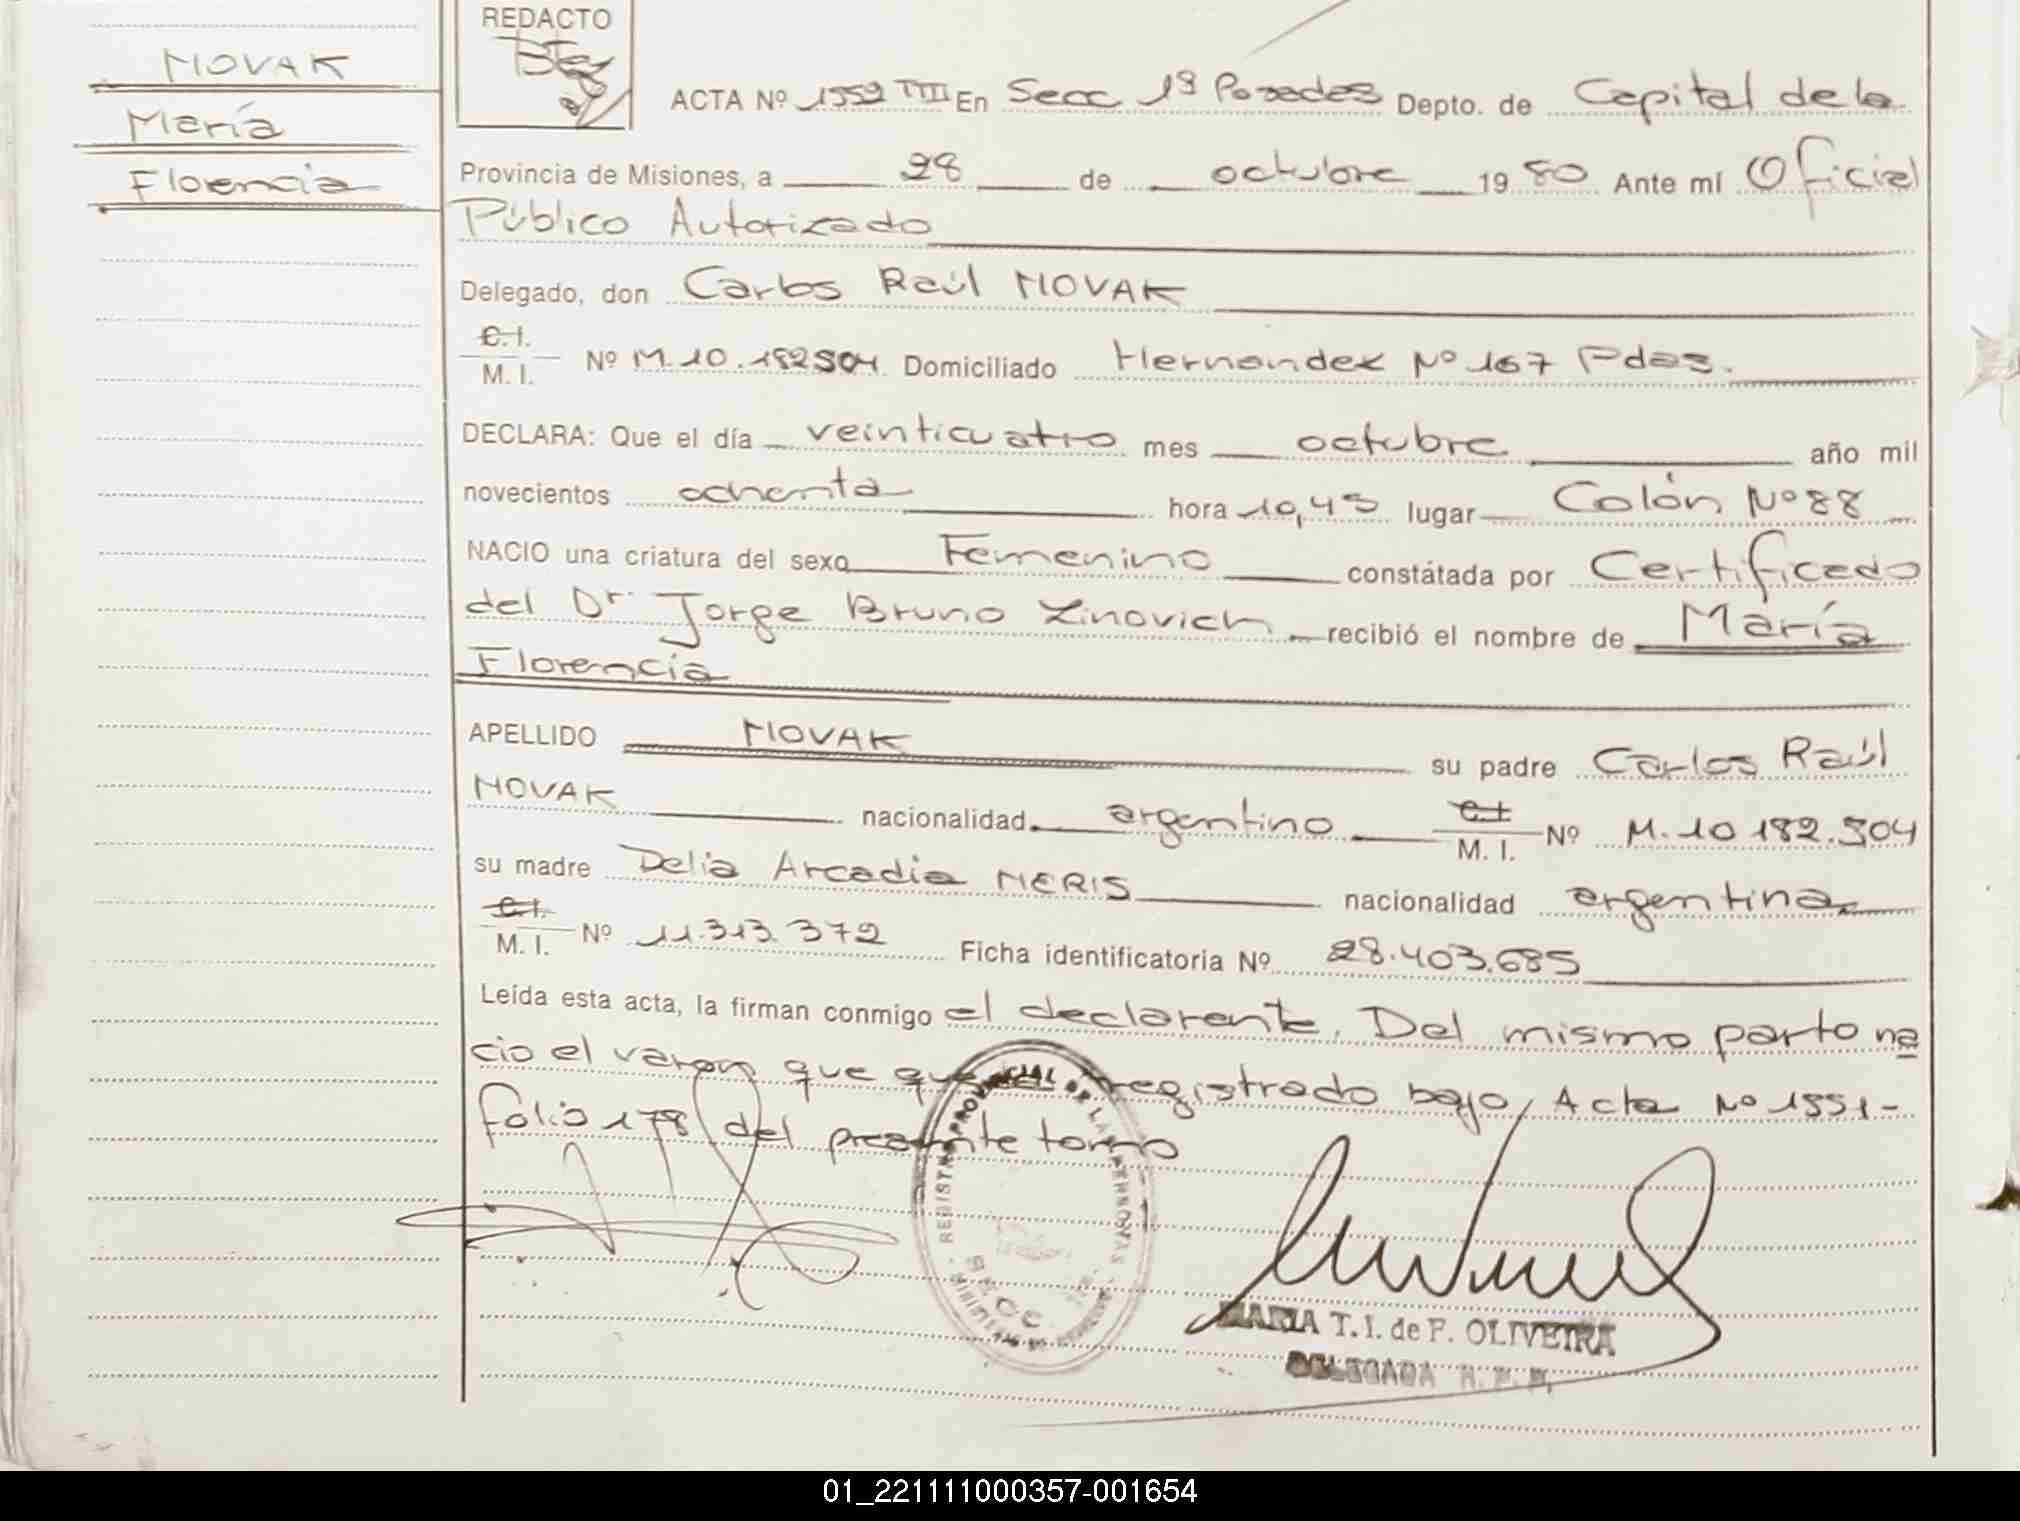 REDACTO
NOVAK
María
Florencia
ACTA Nº 1552 TIII En Secc 1ª Posadas Depto. de Capital de la
Provincia de Misiones, a 28 de octubre 1980 Ante mí Oficial
Público Autorizado
Delegado, don Carlos Raúl NOVAK
C.I.
M. I. Nº M.10.182.504 Domiciliado Hernandez Nº 167 Pdas.
DECLARA: Que el día veinticuatro mes octubre año mil
novecientos ochenta hora 10,45 lugar Colón Nº 88
NACIO una criatura del sexo Femenino constátada por Certificado
del Dr. Jorge Bruno Zinovich recibió el nombre de María
Florencia
APELLIDO NOVAK su padre Carlos Raúl
NOVAK nacionalidad argentino C.I. M. I. Nº M.10 182.504
su madre Delia Arcadia NERIS nacionalidad argentina
C.I.
M. I. Nº 11.313.372 Ficha identificatoria Nº 28.403.685
Leída esta acta, la firman conmigo el declarante. Del mismo parto na
cio el varon que queda registrado bajo Acta Nº 1551-
folio 178 del presente tomo
REGISTRO PROVINCIAL DE LAS PERSONAS
SECC
MARIA T. I. de F. OLIVEIRA
DELEGADA R. P. P.
01_221111000357-001654